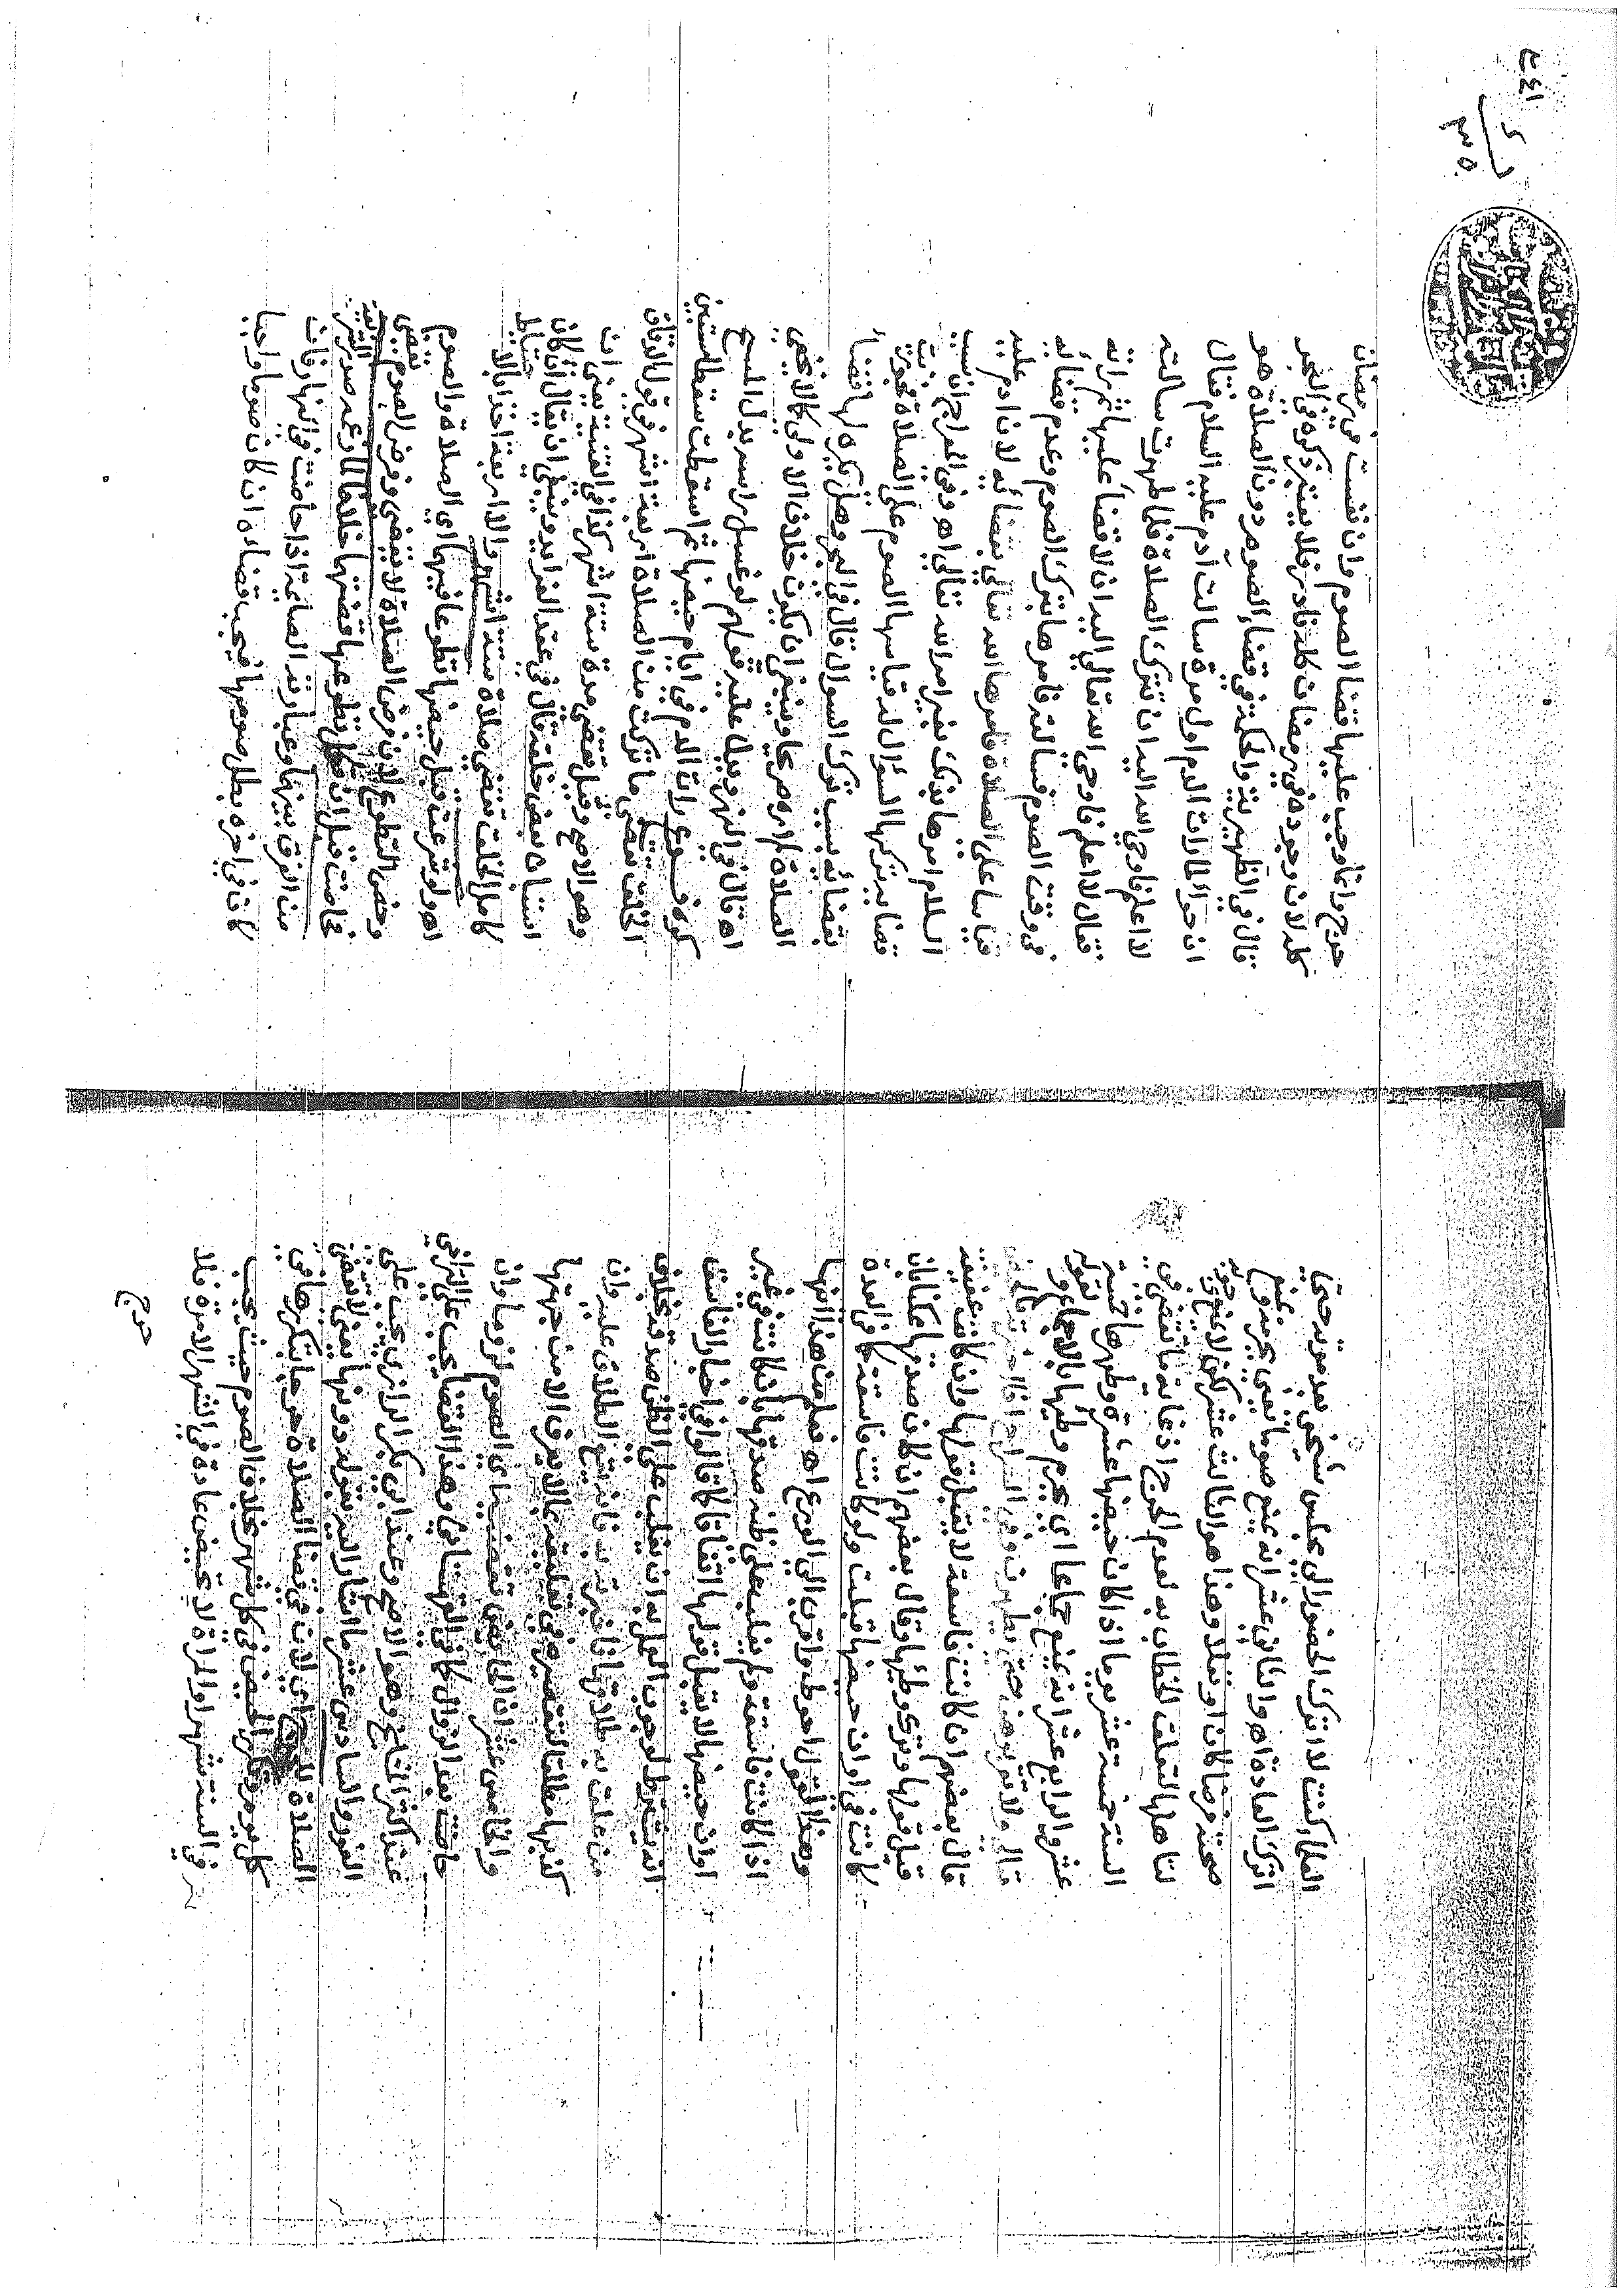 العلما كنت لا اترك الحضور الى مجلس شيخي بعد موته حتى
اترك العادة اه والثاني عشر انه يمنع صوما يعني يحرمه ويمنع
صحته فرضا كان او نفلا وهذا هو الثالث عشر لكن لا يمنع وجوبه
لتعلق الخطاب به لعدم الحرج اذ غاية ما تقضي في
السنة خمسة عشر يوما اذا كان حيضها عشرة وطهرها خمسة
عشر والرابع عشر انه يمنع جماعا اي يحرم وطئها بالاجماع لقوله
تعالى ولا تقربوهن حتى يطهرن وفي السراج
قال بعضهم ان كانت فاسقة لا يقبل قولها وان كانت عفيفة
قبل قولها وترك وطئها وقال بعضهم ان كان صدقها ممكنا بان
كانت في اوان حيضها قبلت ولو كانت فاسقة كما في العدة
وهذا القول احوط واقرب الى الورع اه فعلم من هذا انها
اذا كانت فاسقة ولم يغلب على ظنه صدقها بان كانت في غير
اوان حيضها لا يقبل قولها اتفاقا كما قالوا في اخبار الفاسق
انه يشترط لوجوب العمل به ان يغلب على الظن صدقه بخلاف
من علق به طلاقها فاخبرته به فانه يقع الطلاق عليه وان
كذبها مطلقا لتقصيره في تعليقه بما لا يعرف الا من جهتها
والخامس عشر ان الحائض تقضيه اي الصوم لزوما وان
حاضت بعد الزوال كما في القهستاني وهذا القضا يجب على التراخي
عند اكثر المشايخ وهو الاصح وعند ابي بكر الرازي يجب على
الفور والسادس عشر ما اشار اليه بقوله دونها يعني لا تقضي
الصلاة للحرج اي لان في قضا الصلاة حرجا بتكررها في
كل يوم وتكرر الحيض في كل شهر بخلاف الصوم حيث يجب
في السنة شهرا والمراة لا تحيض عادة في الشهر الا مرة فلا
حرج
حرج وانما وجب عليها قضا الصوم وان نفست في رمضان
كله لان وجوده في رمضان كله نادر فلا يعتبر ذكره في البحر
قال في الظهيرية والحكمة في قضا الصوم دون الصلاة هو
ان حوا لما رات الدم اول مرة سالت آدم عليه السلام فقال
لا اعلم فاوحى الله اليه ان تترك الصلاة فلما طهرت سالته
فقال لا اعلم فاوحى الله تعالى اليه ان لا قضا عليها ثم راته
في وقت الصوم فسالته فامرها بترك الصوم وعدم قضائه
قياسا على الصلاة فامرها الله تعالى بقضائه لان ادم عليه
السلام امرها بذلك بغير امر الله تعالى اه وفي المعراج ان سبب
قضائه بتركها السؤال لقياسها الصوم على الصلاة فجوزيت
بقضائه بسبب ترك السؤال قال في البحر وهل يكره لها قضاء
الصلاة لم اره صريحا وينبغي ان يكون خلاف الاولى كما لا يخفى
اه قال في النهر ويدل عليه قولهم لو غسل راسه بدل المسح
كره فـــروع رات الدم في ايام حيضها ثم اسقطت سقطا مستبين
الخلق تقضي ما تركت من الصلاة اربعة اشهر في قول الدقاق
وهو الاصح وقيل تقضي مدة ستة اشهر كذا في القنية يعني ان
استبان بعض خلقه قال في عقد الفرايد وينبغي ان يقال ان كان
كامل الخلق تقضي صلاة ستة اشهر والا اربعة اخذا بالاحتياط
اه ولو شرعت قبل حيضها تطوعا فيهما اي الصلاة والصوم
وحضن التطوع لان فرض الصلاة لا يقضى وفرض الصوم يقضى
فحاضت قبل ان تكمل تطوعها قضتهما خلافا لما زعمه صدر الشريعة
من الفرق بينهما وعبارته الصائمة اذا حاضت في النهار فان
كان في اخره بطل صومها فيجب قضاءه ان كان صوما واجبا